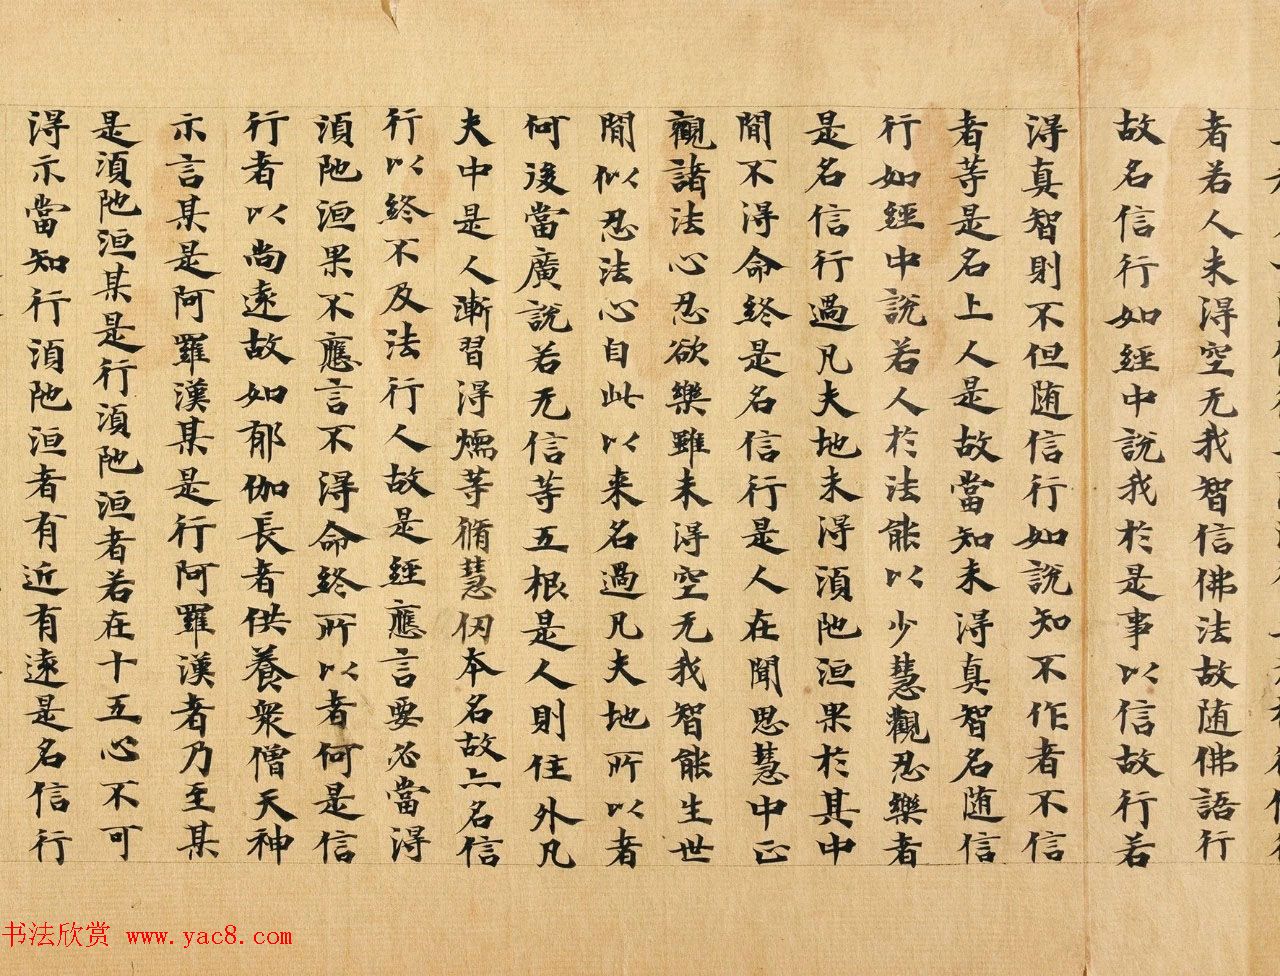 者若人未得空无我智信佛法故随佛語行
故名信行如經中說我於是事以信故行若
得真智則不但随信行如說知不作者不信
者等是名上人是故當知未得真智名随信
行如經中說若人於法能以少慧觀忍樂者
是名信行過凡夫地未得湏陁洹果於其中
間不得命終是名信行是人在聞思慧中正
觀諸法心忍欲樂雖未得空无我智能生世
間似忍法心自此以来名過凡夫地所以者
何後當廣說若无信等五根是人則住外凡
夫中是人漸習得煗等脩慧仍本名故亦名信
行以終不及法行人故是經應言要必當得
湏陁洹果不應言不得命終所以者何是信
行者以尚遠故如郁伽長者供養衆僧天神
示言某是阿羅漢某是行阿羅漢者乃至某
是湏陁洹某是行湏陁洹者若在十五心不可
得示當知行湏陁洹者有近有遠是名信行
书法欣赏 www.yac8.com